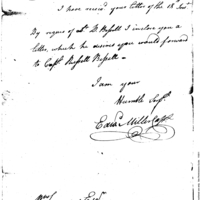 I have receiv'd your letter of the 18 Inst
By reques of Lt. D. Russell I inclose you a
letter, which he desires you would forward
to Capt. Russell
I am your
Humble Serv.
Edwd. Miller Capt.
Esqr.